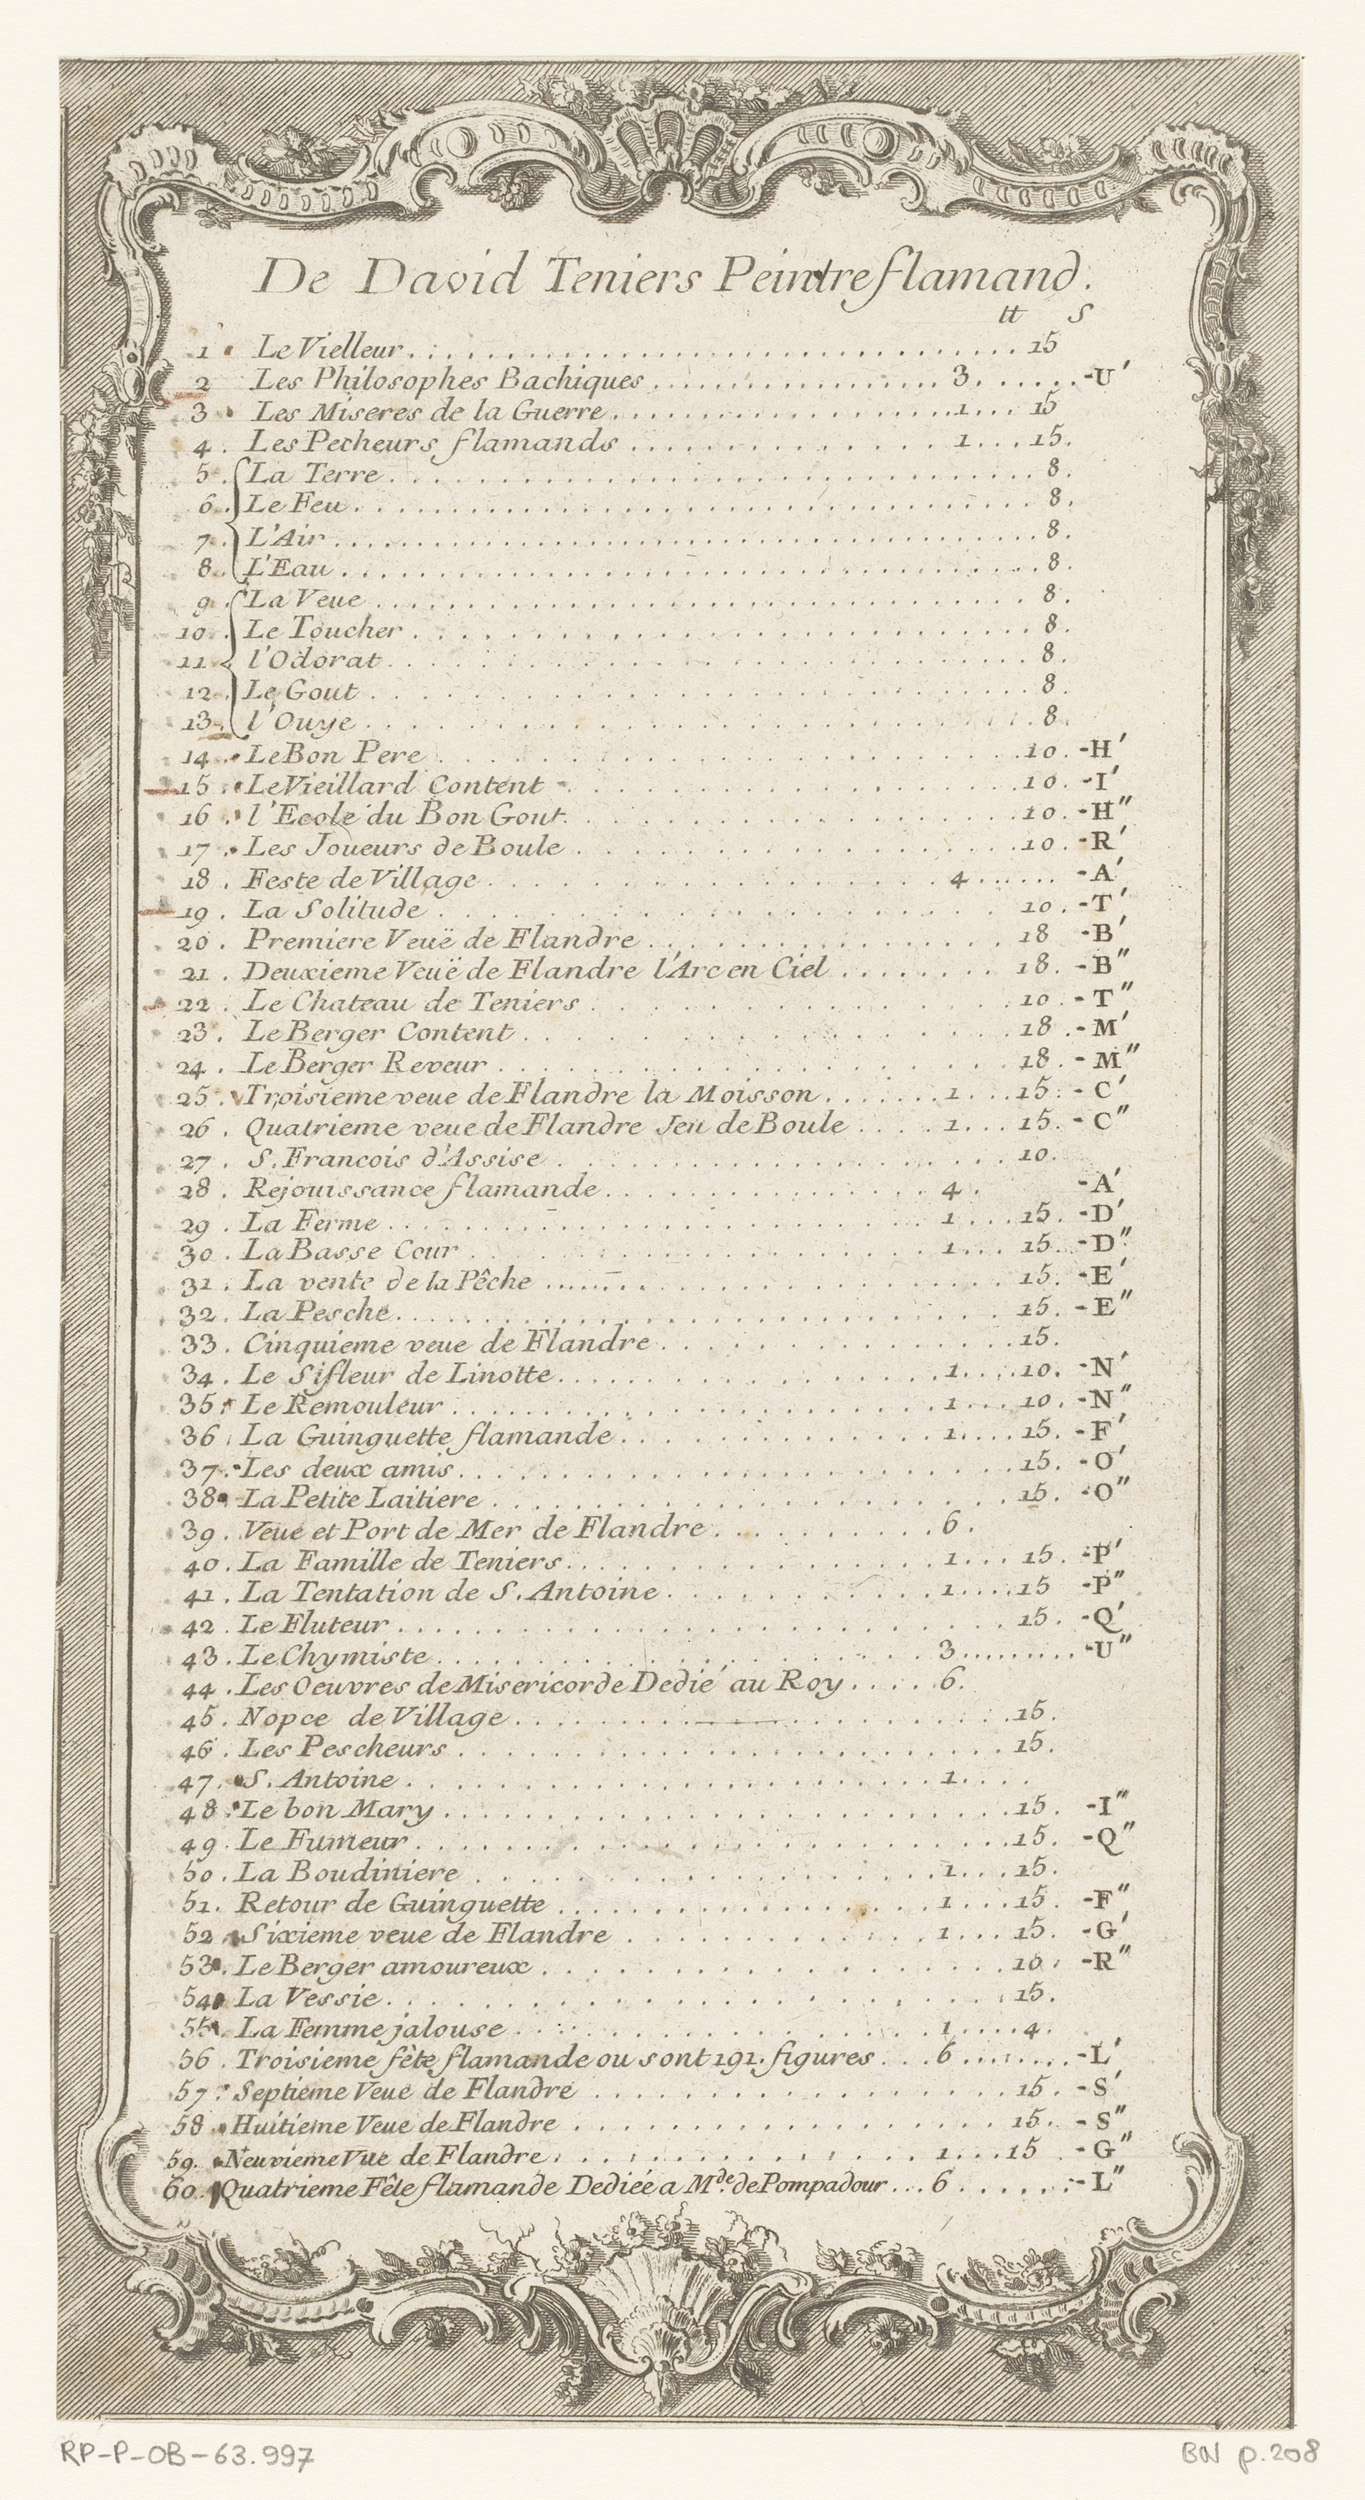 De David Teniers Peintre flamand.
tt S
1 Le Vielleur. 15
2 Les Philosophes Bachiques 3. -U'
3 Les Miseres de la Guerre 1 15
4. Les Pecheurs flamands 1 15.
5. La Terre 8.
6. Le Feu 8.
7. L'Air 8.
8. L'Eau 8.
9. La Veue 8.
10. Le Toucher 8.
11. l'Odorat 8.
12. Le Gout 8.
13. l'Ouye 8.
14. Le Bon Pere 10. -H'
15. Le Vieillard Content 10. -I'
16. l'Ecole du Bon Gout. 10. -H"
17. Les Joueurs de Boule 10. -R'
18. Feste de Village 4 -A'
19. La Solitude 10. -T'
20. Premiere Veuë de Flandre 18 -B'
21. Deuxieme Veuë de Flandre l'Arc en Ciel 18. -B"
22. Le Chateau de Teniers 10. -T"
23. Le Berger Content 18. -M'
24. Le Berger Reveur 18. -M"
25. Troisieme veue de Flandre la Moisson 1 15. -C'
26. Quatrieme veue de Flandre Jeu de Boule 1 15. -C"
27. S. Francois d'Assise 10.
28. Rejouissance flamande 4. -A'
29. La Ferme 1 15. -D'
30. La Basse Cour 1 15. -D"
31. La vente de la Pêche 15. -E'
32. La Pesche 15. -E"
33. Cinquieme veue de Flandre 15.
34. Le Sifleur de Linotte 1 10. -N'
35. Le Remouleur 1 10. -N"
36. La Guinguette flamande 1 15. -F'
37. Les deux amis 15. -O'
38. La Petite Laitiere 15. -O"
39. Veue et Port de Mer de Flandre 6.
40. La Famille de Teniers 1 15. -P'
41. La Tentation de S. Antoine 1 15 -P"
42. Le Fluteur 15. -Q'
43. Le Chymiste 3 -U"
44. Les Oeuvres de Misericorde Dedié au Roy 6.
45. Nopce de Village 15.
46. Les Pescheurs 15.
47. S. Antoine 1
48. Le bon Mary 15. -I"
49. Le Fumeur 15. -Q"
50. La Boudiniere 1 15.
51. Retour de Guinguette 1 15. -F"
52 Sixieme veue de Flandre 1 15. -G'
53. Le Berger amoureux 10. -R"
54. La Vessie 15.
55. La Femme jalouse 1 4.
56. Troisieme fête flamande ou sont 191. figures 6 -L'
57. Septieme Veue de Flandre 15. -S'
58. Huitieme Veue de Flandre 15. -S"
59. Neuvieme Vue de Flandre 1 15 -G"
60. Quatrieme Fête flamande Dediée a Mde. de Pompadour 6 -L"
RP-P-OB-63.997 BN p.208